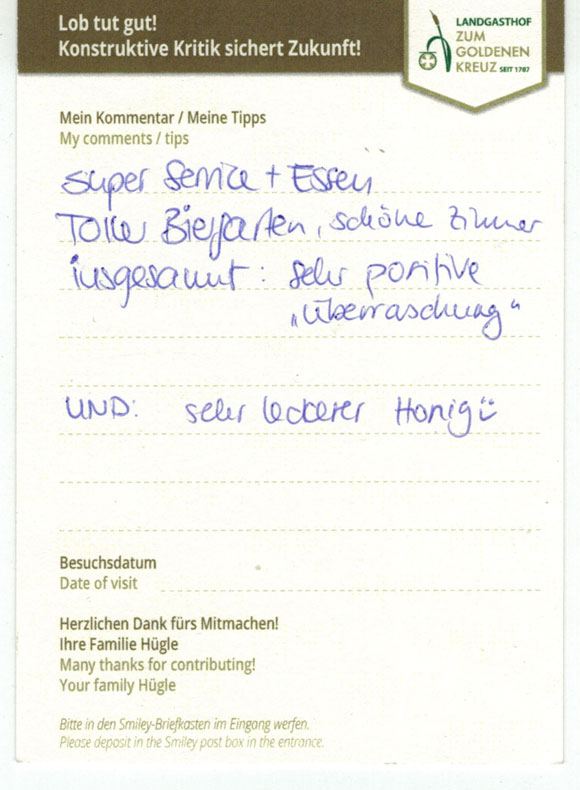 Lob tut gut!
Konstruktive Kritik sichert Zukunft!
LANDGASTHOF
ZUM
GOLDENEN
KREUZ SEIT 1787
Mein Kommentar / Meine Tipps
My comments / tips
Super Service + Essen
Toller Biergarten, schöne Zimmer
insgesamt: sehr positive
„Überraschung“
UND: sehr leckerer Honig☺
Besuchsdatum
Date of visit
Herzlichen Dank fürs Mitmachen!
Ihre Familie Hügle
Many thanks for contributing!
Your family Hügle
Bitte in den Smiley-Briefkasten im Eingang werfen.
Please deposit in the Smiley post box in the entrance.